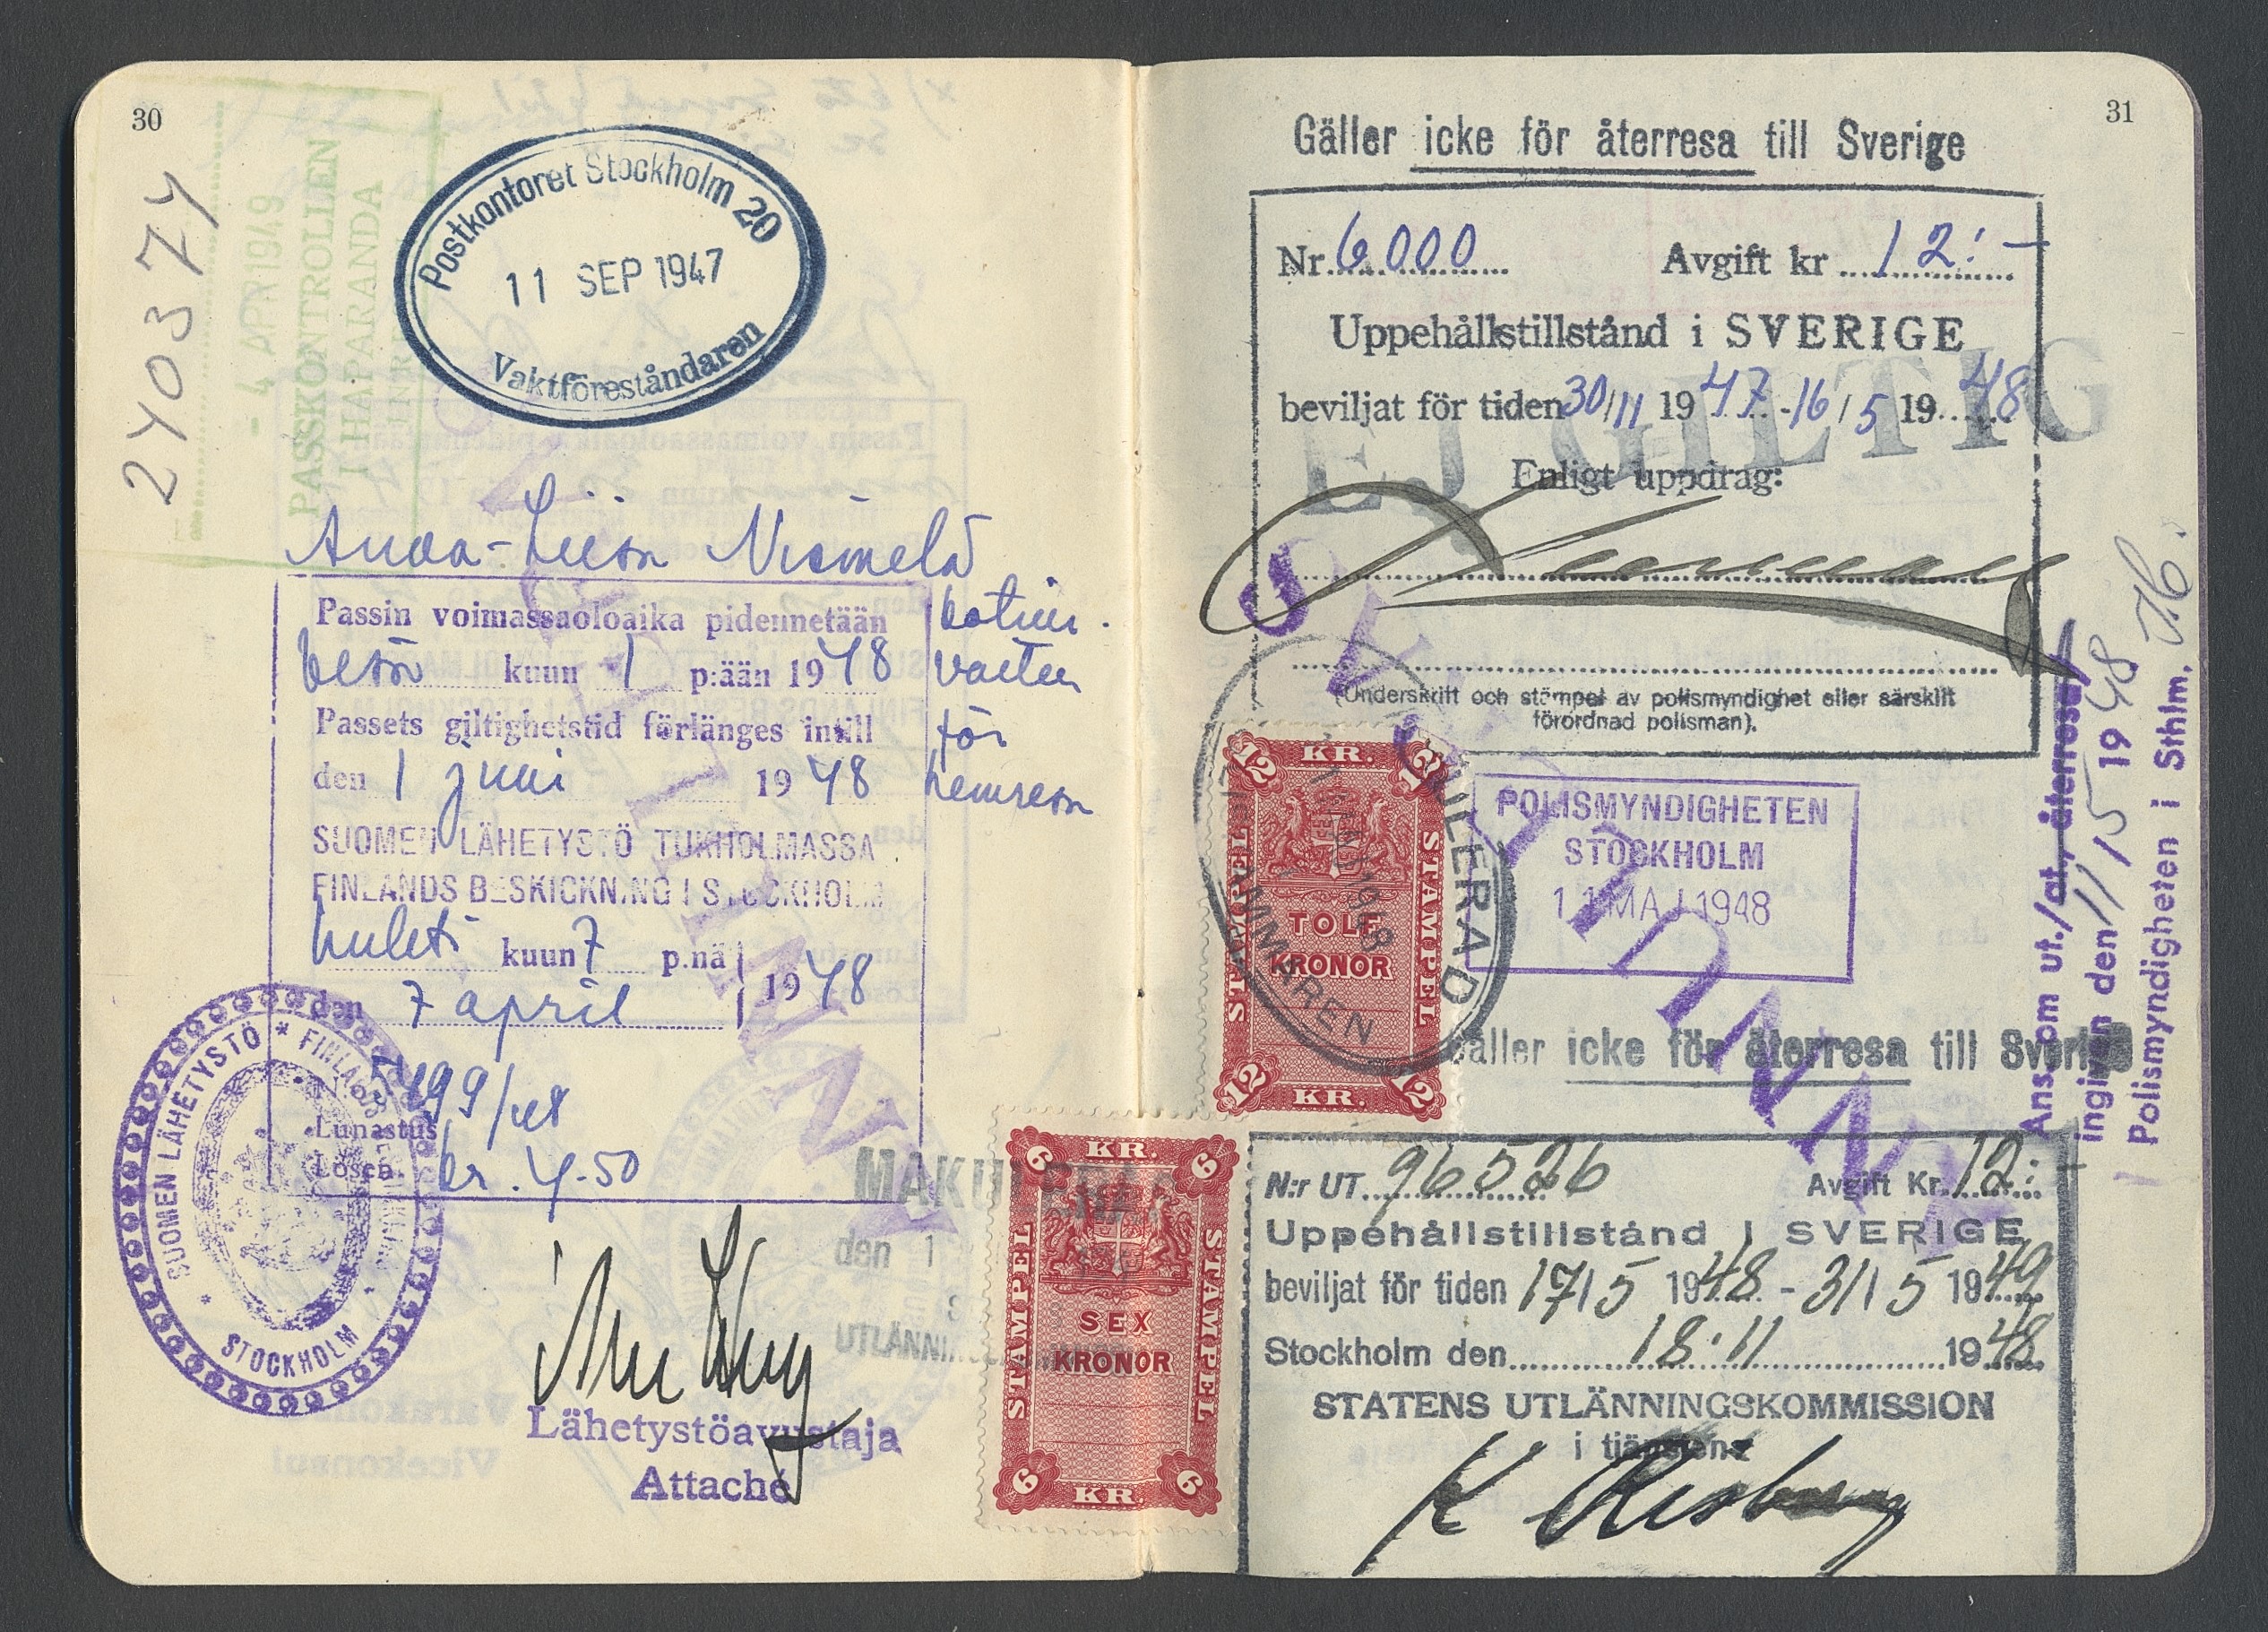 30
240374
- 4 APR 1949
PASSKONTROLLEN
I HAPARANDA
Postkontoret Stockholm 20
11 SEP 1947
Vaktföreståndaren
Anna-Liisa Niemelä
Passin voimassaoloaika pidennetään
kesä kuun 1 p:ään 1948
Passets giltighetstid förlänges intill
den 1 juni 1948
kotim.
varten
för
hemresa
SUOMEN LÄHETYSTÖ TUKHOLMASSA
FINLANDS BESKICKNING I STOCKHOLM
huhti kuun 7 p.nä
den 7 april 1948
Lunastus
Lösen. kr. 4.50
SUOMEN LÄHETYSTÖ * FINLANDS
STOCKHOLM
Lähetystöavustaja
Attaché
MAKULERA
den 1
UTLÄNNI
KR.
6 6
STAMPEL STAMPEL
SEX
KRONOR
6 6
KR.
31
Gäller icke för återresa till Sverige
Nr. 6000 Avgift kr 12:-
Uppehållstillstånd i SVERIGE
beviljat för tiden 30/11 1947 - 16/5 1948
EJ GILTIG
Enligt uppdrag:
(Underskrift och stämpel av polismyndighet eller särskilt
förordnad polisman).
KR.
12 12
STAMPEL STAMPEL
TOLF
KRONOR
12 12
KR.
POLISMYNDIGHETEN
STOCKHOLM
11 MAJ 1948
Ans. om ut./at., återresa/
ingiven den 11/5 1948
Polismyndigheten i Sthlm.
Gäller icke för återresa till Sverige
N:r UT. 96526 Avgift Kr. 12:
Uppehållstillstånd I SVERIGE
beviljat för tiden 17/5 1948 - 31/5 1949
Stockholm den 18.11 1948
STATENS UTLÄNNINGSKOMMISSION
i tjänsten: